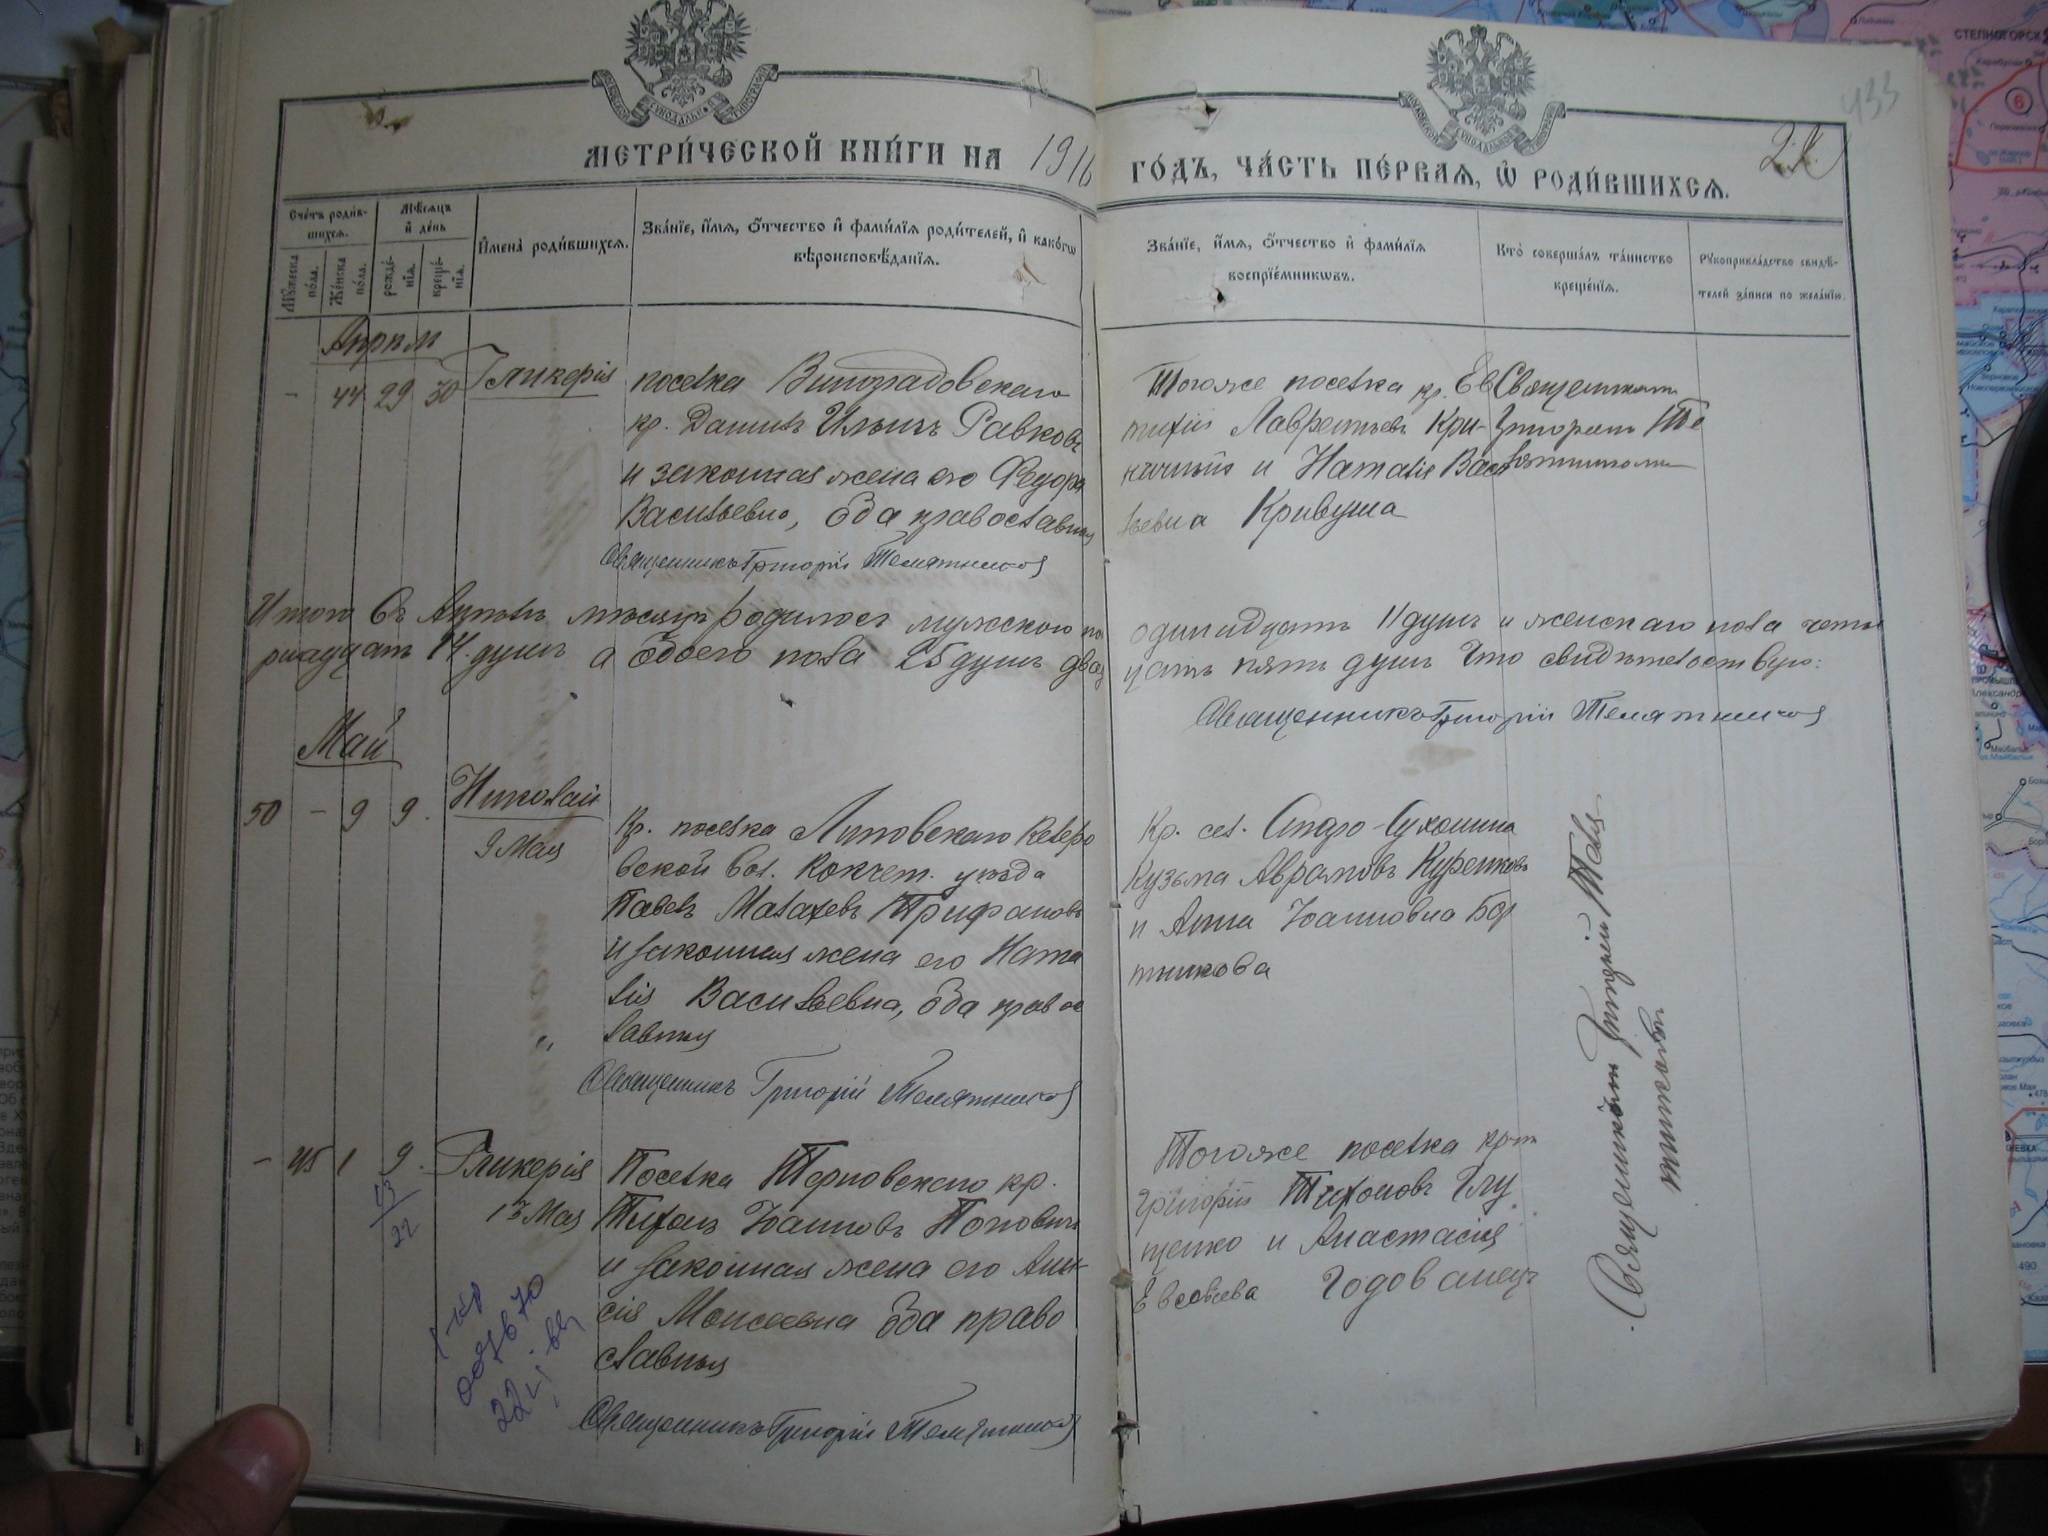 МЕТРИ́ЧЕСКОЙ КНИ́ГИ НА 1916 ГО́ДЪ, ЧА́СТЬ ПЕ́РВАЯ, Ѡ РОДИ́ВШИХСЯ.
433
Сче́тъ роди́вшихся.
Мѣ́сяцъ и де́нь
Мꙋ́жеска по́ла.
Же́нска по́ла.
рожде́нія.
креще́нія.
Имена̀ роди́вшихся.
Зва́ніе, и́мя, ѻ́тчество и фами́лія роди́телей, и како́гѡ вѣроисповѣ́данія.
Зва́ніе, и́мя, ѻ́тчество и фами́лія воспріе́мникѡвъ.
Кто̀ соверша́лъ та́инство креще́нія.
Рꙋкоприкла́дство свидѣ́телей за́писи по жела́нію.
Апрѣль
- 44 29 30
Гликерія
поселка Виноградовскаго
кр. Даниилъ Ильичъ Равковъ
и законная жена его Ѳедора
Васильевна, оба православныя
Священникъ Григорій Телятниковъ
Тогоже поселка кр. Ев
тихій Лаврентьевъ Кри-
ничный и Наталія Васи
льевна Кривуша
Священникъ
Григорій Те
лятниковъ
Итого въ Апрѣлѣ мѣсяцѣ родилось мужского по одинадцать 11 душъ и женскаго пола четы
рнадцать 14 душъ а обоего пола 25 душъ двад цать пять душъ Что свидѣтельствую:
Священникъ Григорій Телятниковъ
Май
50 - 9 9.
Николай
9 Мая
Кр. поселка Липовскаго Келеро
вской вол. Кокчет. уѣзда
Павелъ Малахевъ Трифановъ
и законная жена его Ната
лія Васильевна, оба правос
лавныя
Священникъ Григорій Телятниковъ
Кр. сел.
Кузьма Аврамовъ Куренковъ
и Анна Іоанновна
тникова
Священникъ Григорій Теля
тниковъ
- 45 1 9.
Гликерія
13 Мая
Поселка Терновскаго кр.
Тихонъ Іоанновъ Поповичъ
и законная жена его Ани
сія Моисеевна оба право
славныя
Священникъ Григорій Телятниковъ
Тогоже поселка кр-нъ
Григорій Тихоновъ Глу
щенко и Анастасія
Евсевіева Годованецъ